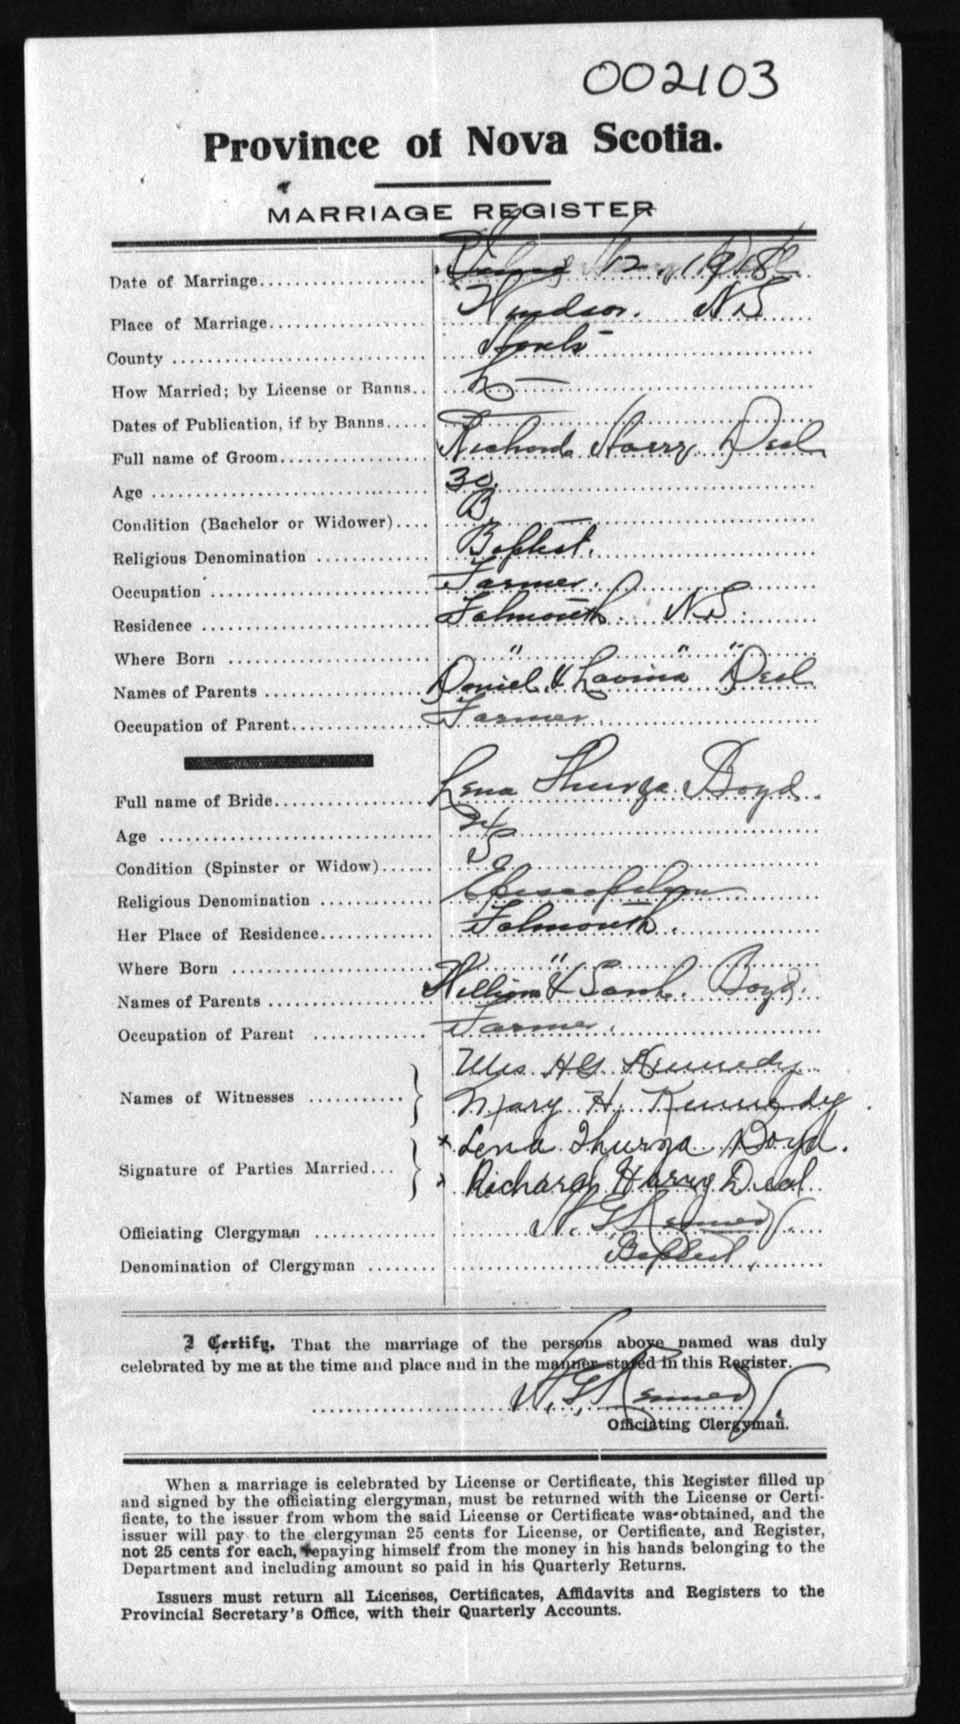 002103
Province of Nova Scotia.
MARRIAGE REGISTER
Date of Marriage 12, 1918
Place of Marriage Windsor. NS
County Hants
How Married; by License or Banns L
Dates of Publication, if by Banns
Full name of Groom Richard Harry Deal
Age 30
Condition (Bachelor or Widower) B
Religious Denomination Baptist.
Occupation Farmer.
Residence Falmouth NS.
Where Born " " "
Names of Parents Daniel & Lavina Deal
Occupation of Parent Farmer
Full name of Bride Lena Thurza Boyd.
Age 24
Condition (Spinster or Widow) S
Religious Denomination Episcopalian
Her Place of Residence Falmouth.
Where Born "
Names of Parents William & Sarah. Boyd.
Occupation of Parent Farmer.
Names of Witnesses Mrs HG Kennedy
Mary H. Kennedy
Signature of Parties Married x Lena Thurza Boyd.
x Richard Harry Deal
Officiating Clergyman
Denomination of Clergyman Baptist.
I Certify, That the marriage of the persons above named was duly
celebrated by me at the time and place and in the manner stated in this Register.
Officiating Clergyman.
When a marriage is celebrated by License or Certificate, this Register filled up
and signed by the officiating clergyman, must be returned with the License or Certi-
ficate, to the issuer from whom the said License or Certificate was obtained, and the
issuer will pay to the clergyman 25 cents for License, or Certificate, and Register,
not 25 cents for each, repaying himself from the money in his hands belonging to the
Department and including amount so paid in his Quarterly Returns.
Issuers must return all Licenses, Certificates, Affidavits and Registers to the
Provincial Secretary's Office, with their Quarterly Accounts.